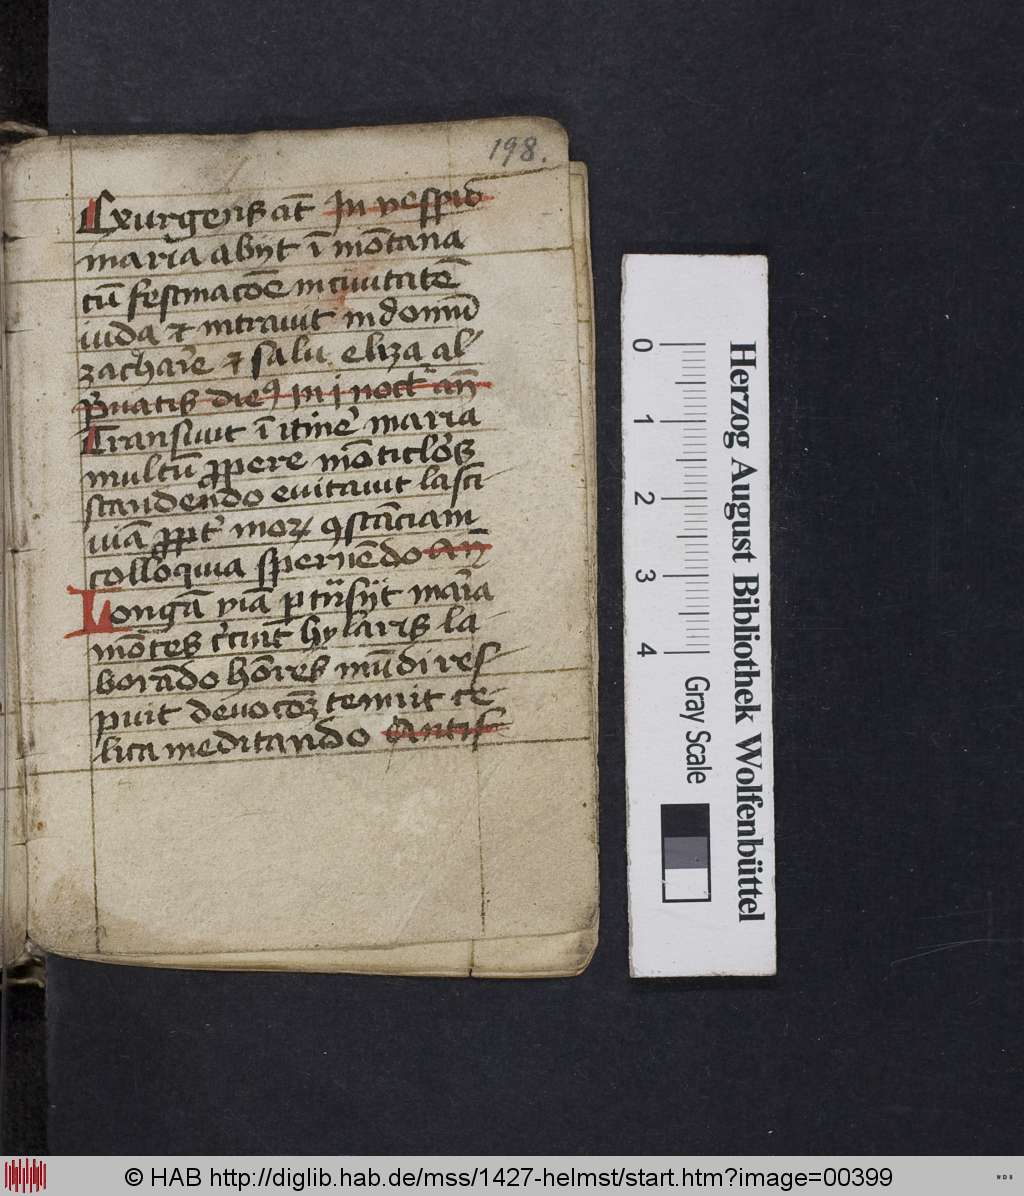 198.
Exurgens at̄ In vesp̄is
maria abijt ī mōtana
cū festinacōe in ciuitatē
iuda et intrauit in domū
zacharie et salu eliza al
P̄uatis dieꝰ in j noctr̄ an̄
Transiuit ī itinere maria
multū propere mōticlos
scandendo euitauit lasci
uiā propt̾ moꝝ ꝯstāciam
colloquia spernēdo An̄
Longā viā p trāsijt maria
mōtes hylaris la
borādo hōres mūdi res
puit deuocōꝫ tenuit ce
lica meditando Antif
Herzog August Bibliothek Wolfenbüttel
0 1 2 3 4
Gray Scale
© HAB http://diglib.hab.de/mss/1427-helmst/start.htm?image=00399